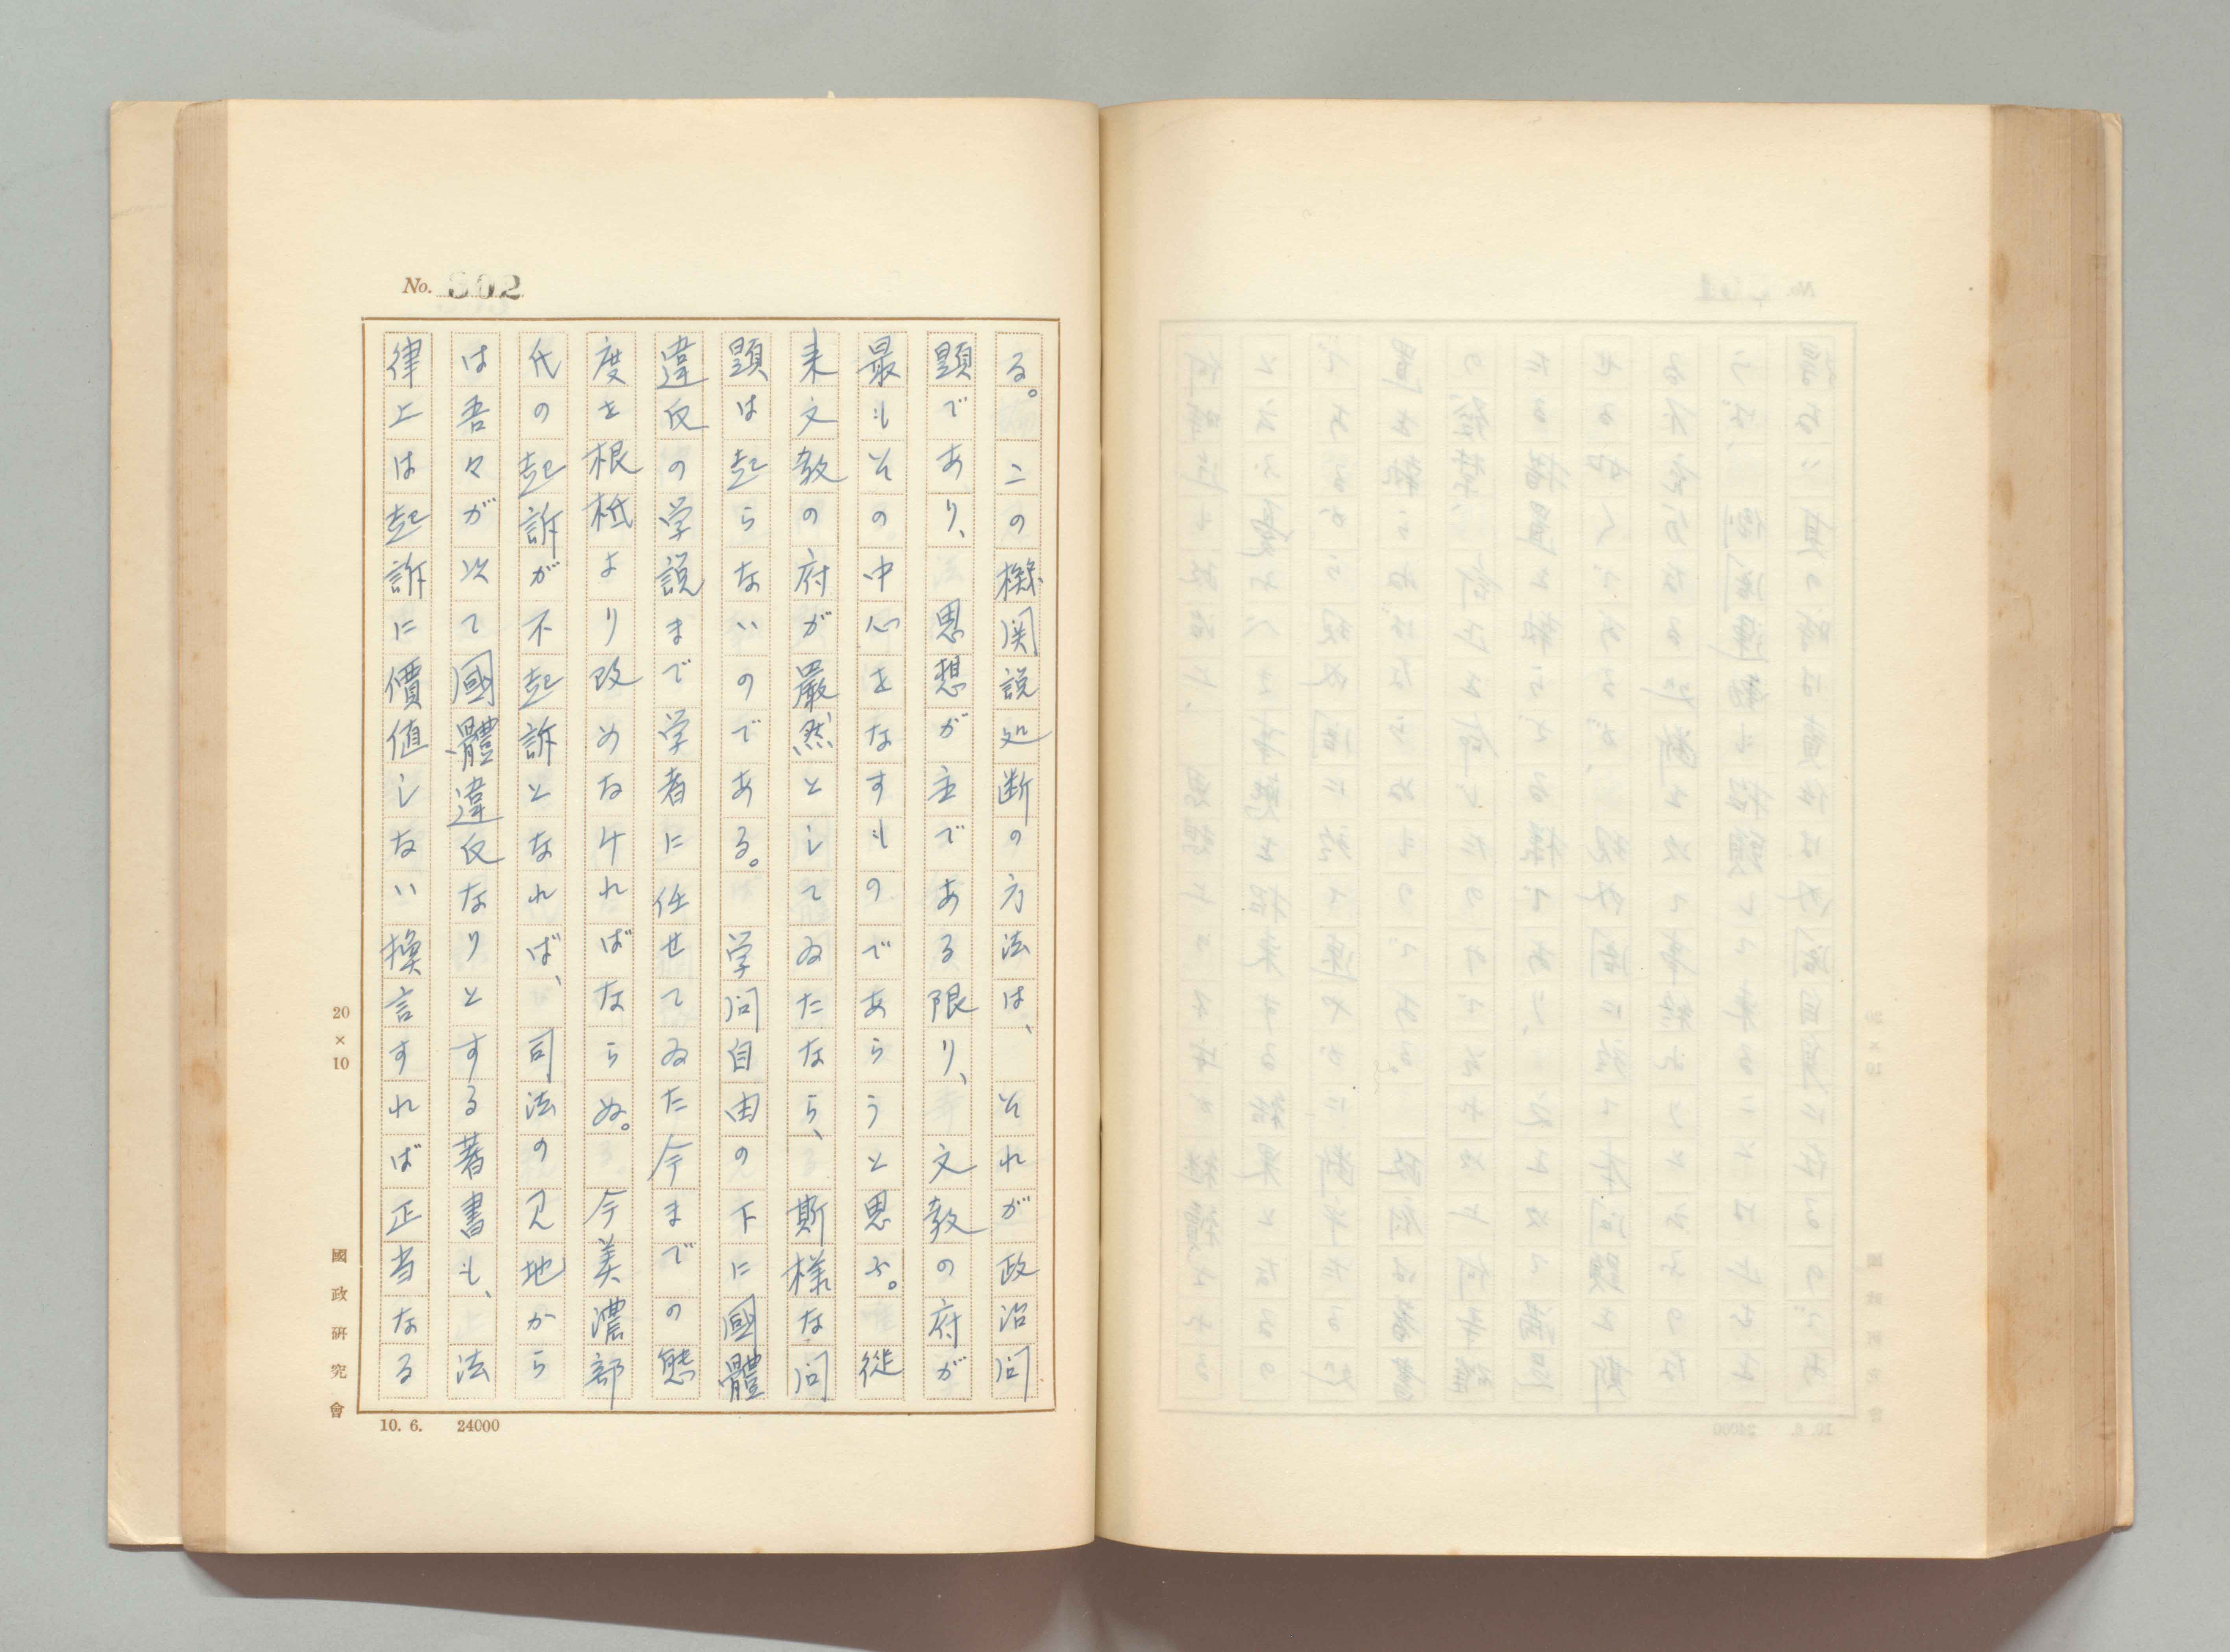 No. 802
る。この機関説処断の方法は、それが政治問
題であり、思想が主である限り、文教の府が
最もその中心をなすものであらうと思ふ。従
来文教の府が厳然としてゐたなら、斯様な問
題は起らないのである。学問自由の下に國體
違反の学説まで学者に任せてゐた今までの態
度を根柢より改めなければならぬ。今美濃部
氏の起訴が不起訴となれば、司法の見地から
は吾々が以て國體違反なりとする著書も、法
律上は起訴に價値しない換言すれば正当なる
20×10
國政研究會
10. 6. 24000